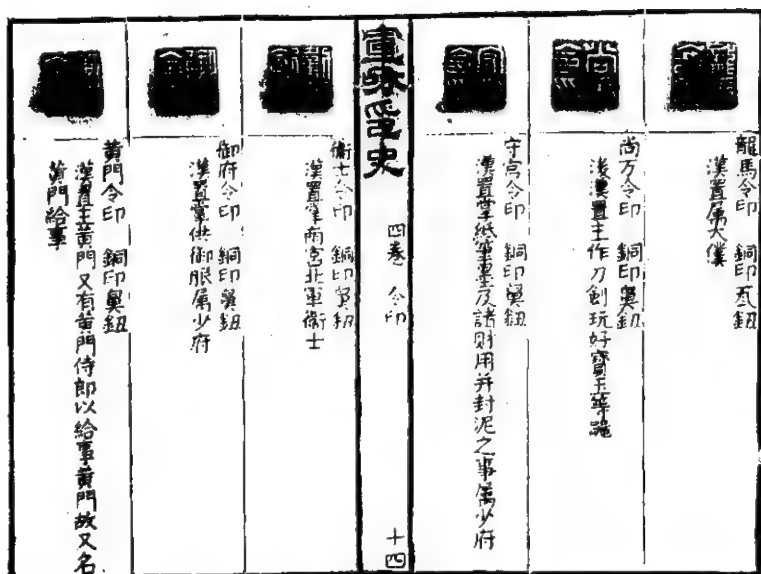 龍馬令印　銅印瓦鈕
漢置属大僕
尚方令印　銅印鼻鈕
後漢置主作刀劍玩好寶玉等器
守宮令印　銅印鼻鈕
漢置掌紙筆墨及諸財用并封泥之事属少府
宣和印史　四卷　令印　十四
衛士令印　銅印鼻鈕
漢置掌南宮北軍衛士
御府令印　銅印鼻鈕
漢置掌供御服属少府
黃門令印　銅印鼻鈕
漢置主黃門又有黃門侍郎以給事黃門故又名
黃門給事